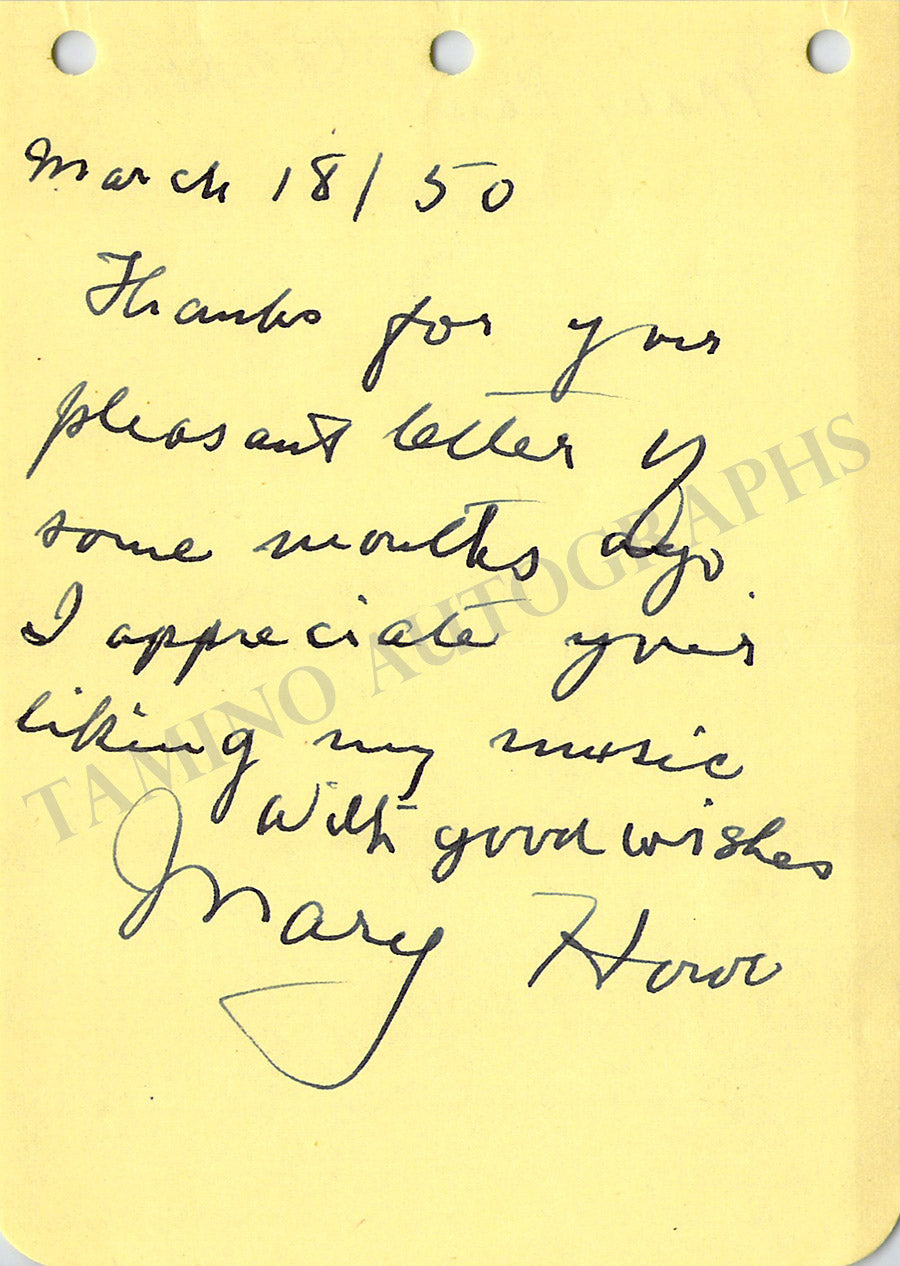 March 18/50
Thanks for your
pleasant letter of
some months ago.
I appreciate your
liking my music
With good wishes
Mary Howe
TAMINO AUTOGRAPHS